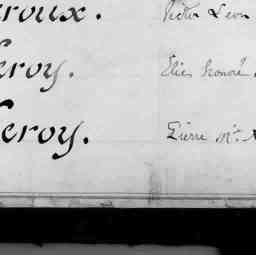 eroux. Victor Leon
Leroy. Elie Honoré
Leroy. Pierre M.